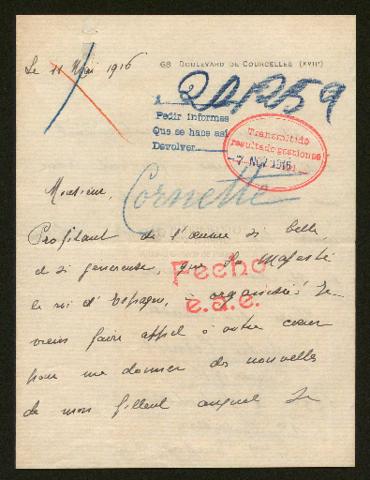 Le 11 Mai 1916
68 BOULEVARD DE COURCELLES (XVIIe)
Pedir informes
Que se hace así
Devolver
Transmitido
resultado gestiones
7 NOV 1916
Monsieur,
Cornette
Profitant de l'œuvre si belle,
et si généreuse, que Sa Majesté
le roi d'Espagne, a organisée Je
Fecho
e.a.e.
viens faire appel à votre cœur
pour me donner des nouvelles
de mon filleul auquel Je